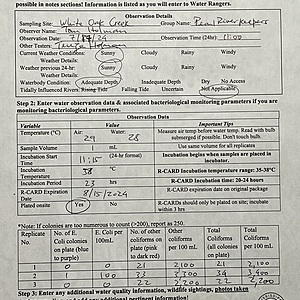 possible in notes sections! Information is listed as you will enter to Water Rangers.
Observation Details
Sampling Site: White Oak Creek Group Name: Pearl Riverkeeper
Observer Name:
Observation Date: Observation Time (24hr) 11:00
Other Testers:
Current Weather Conditions: Sunny Cloudy Rainy Windy
Weather Details:
Weather previous 24-hr: Sunny Cloudy Rainy Windy
Weather Details:
Waterbody Condition: Adequate Depth Inadequate Depth Dry No Access
Tidally Influenced Rivers: Rising Tide Falling Tide Uncertain Not Applicable
Step 2: Enter water observation data & associated bacteriological monitoring parameters if you are monitoring bacteriological parameters.
Observation Data
Variable Value Important Tips
Temperature (°C) Air: 29 Water: 28 Measure air temp before water temp. Read with bulb submerged if possible. Don't touch bulb.
Sample Volume 1 mL Use same volume for all replicates
Incubation Start Time 11:15 (24-hr format) Incubation begins when samples are placed in incubator.
Incubation Temperature 38 °C R-CARD Incubation temperature range: 35-38°C
Incubation Period 23 hrs R-CARD Incubation time: 20-24 hours
R-CARD Expiration Date 8/15/2024 R-CARD expiration date on original package
Plated onsite Yes No R-CARDs should only be plated on-site; incubate within 3 hrs
*Note: If colonies are too numerous to count (>200), report as 250.
Replicate No. No. of E. Coli colonies on plate (blue to purple) E. Coli per 100mL No. of other coliforms on plate (pink to dark red) Other coliforms per 100 mL Total Coliforms (all colonies on plate) Total Coliforms per 100 mL
1 0 0 21 2,100 21 2,100
2 1 100 33 3,300 34 3,400
3 0 0 22 2,200 22 2,200
Step 3: Enter any additional water quality information, wildlife sightings, photos taken
additional pertinent information!